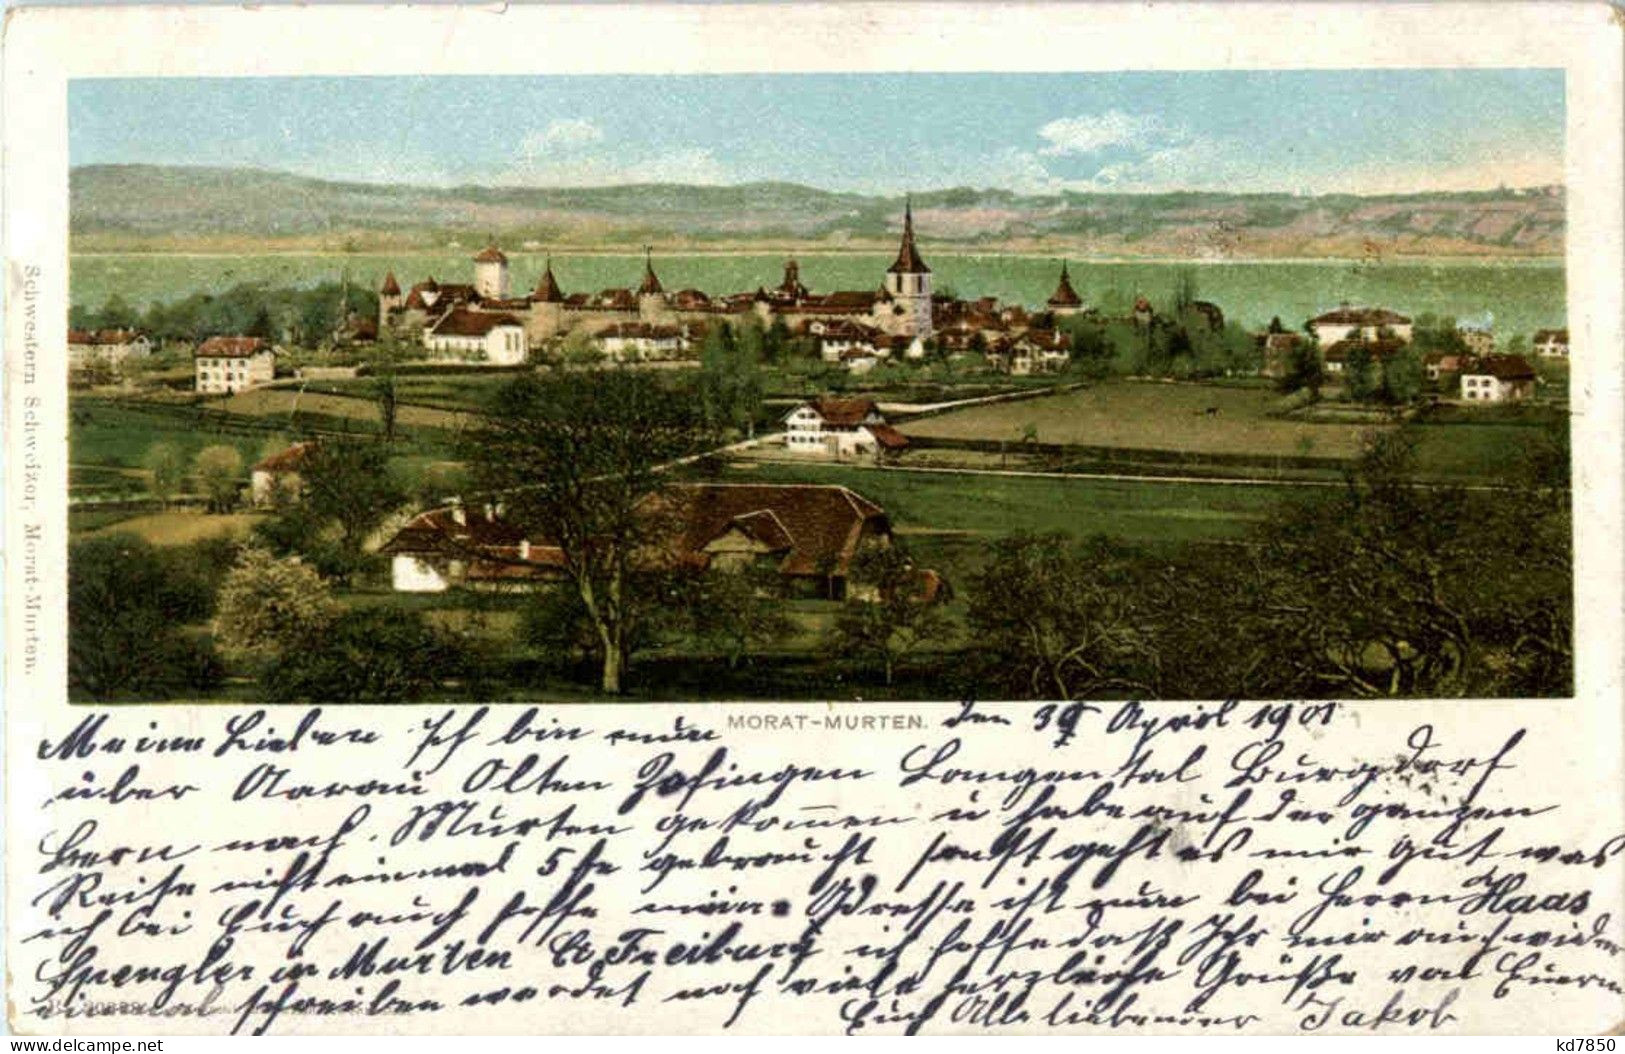 Schwestern Schweizer, Morat-Murten.
MORAT-MURTEN.
den 30 April 1901
Meine Lieben Ich bin nun
über Aarau Olten Zofingen Langental Burgdorf
Bern nach Murten gekommen u habe auf der ganzen
Reise nicht einmal 5 gebraucht sonst geht es mir gut was
ich bei Euch auch hoffe meine Adresse ist nun bei Herrn Haas
Spengler in Murten Ct Freiburg ich hoffe daß Ihr mir auch wider
einmal schreiben werdet noch viele herzliche Grüße von Euerm
Euch Alle liebender Jakob
kd7850